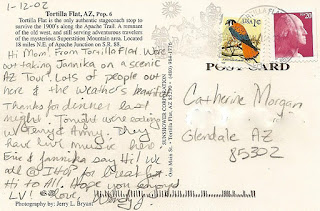 1-12-02
Tortilla Flat, AZ, Pop. 6
Tortilla Flat is the only authentic stagecoach stop to
survive the 1900's along the Apache Trail. A remnant
of the old west, and still serving adventurous travelers
of the mysterious Superstition Mountain area. Located
18 miles N.E. of Apache Junction on S.R. 88.
Hi Mom! From Tortilla Flat. Were
out taking Jannika on a scenic
AZ Tour. Lots of people out
here & the weather's beautiful
Thanks for dinner last
night. Tonight were eating
w/ Terry & Amy. They
have live music here
Eric & Jannika say Hi! We
all @ IHOP for breakfast
Hi to All. Hope you enjoyed
LV! Love,
Photography by: Jerry L. Bryant
SUNBURST CORPORATION
POST CARD
1¢
USA
20
Catherine Morgan
Glendale AZ
85302